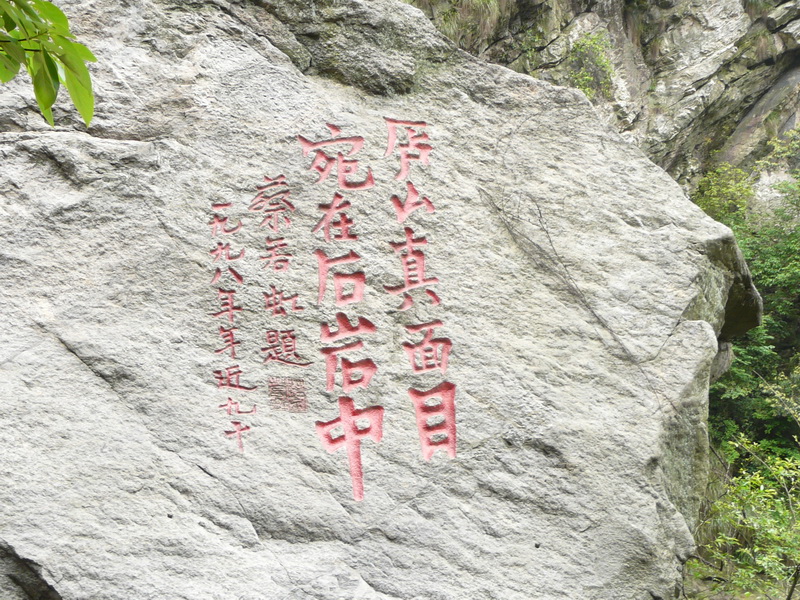 庐山真面目
宛在石岩中
蔡若虹题
一九九八年年近九十